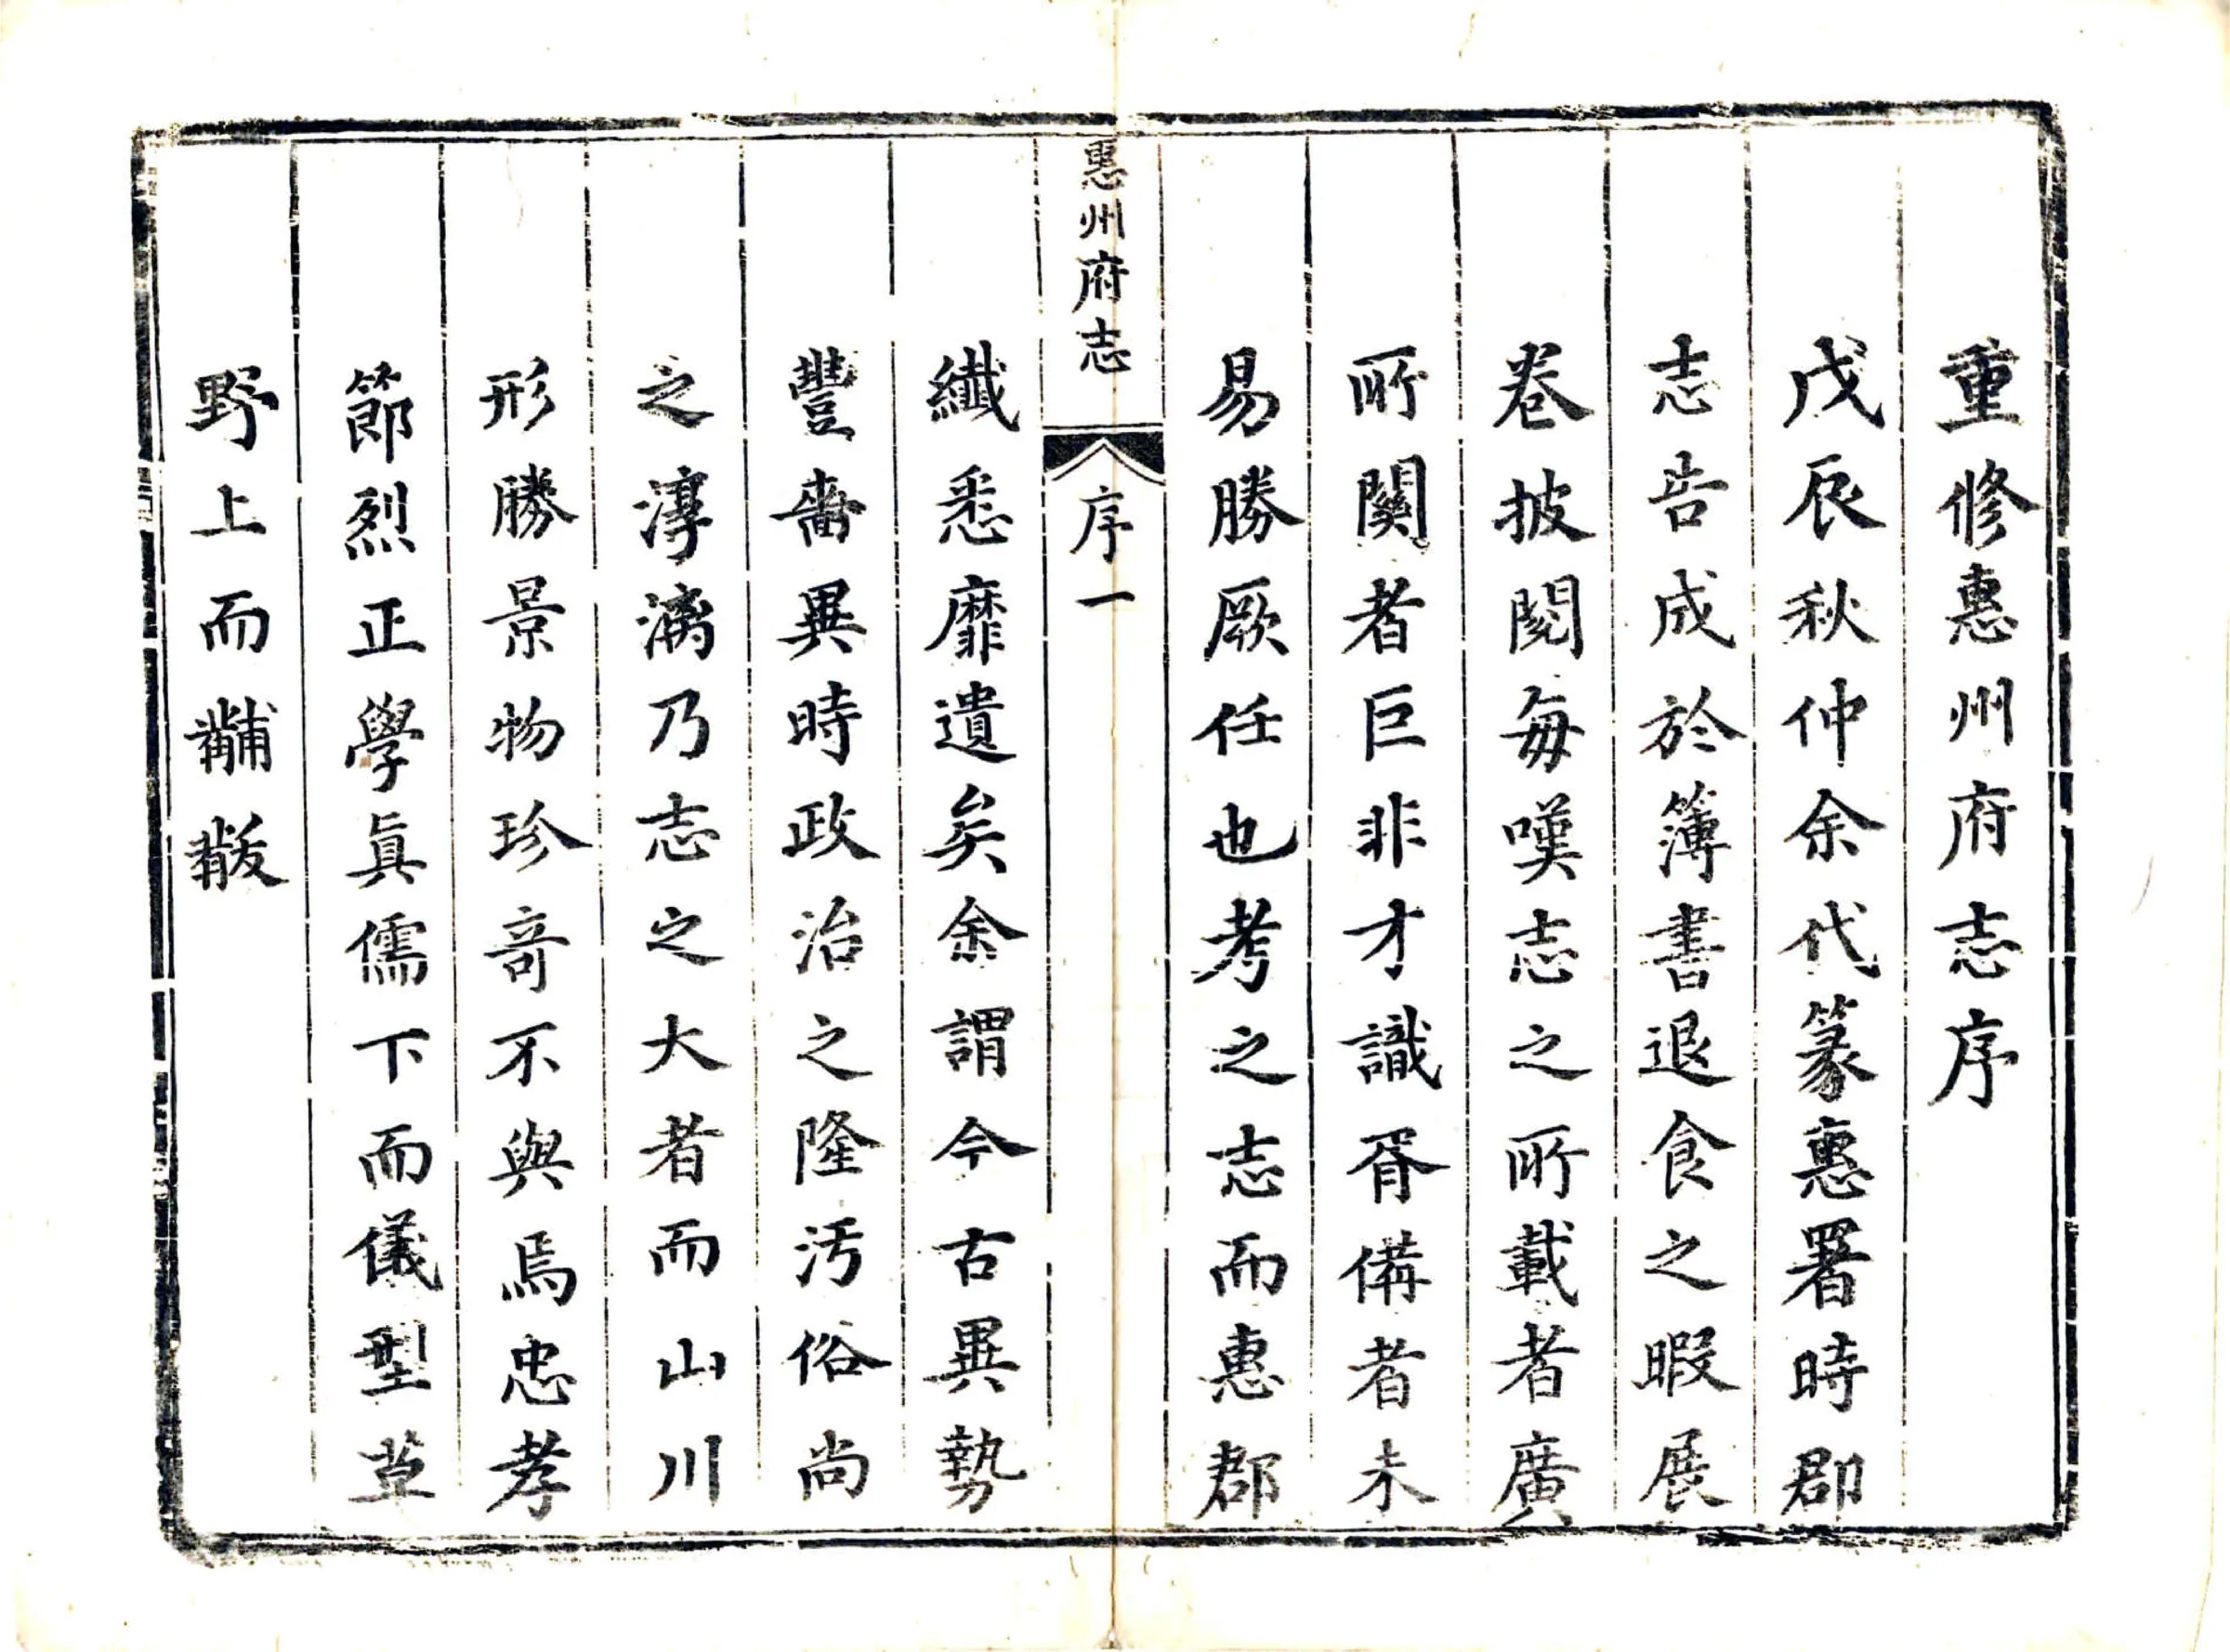 重修惠州府志序
戊辰秋仲余代篆惠署時郡
志告成於簿書退食之暇展
卷披閱每嘆志之所載者廣
所關者巨非才識胥備者未
易勝厥任也考之志而惠郡
惠州府志 序一
纖悉靡遺矣余謂今古異勢
豐嗇異時政治之隆汚俗尚
之淳漓乃志之大者而山川
形勝景物珍奇不與焉忠孝
節烈正學眞儒下而儀型草
野上而黼黻